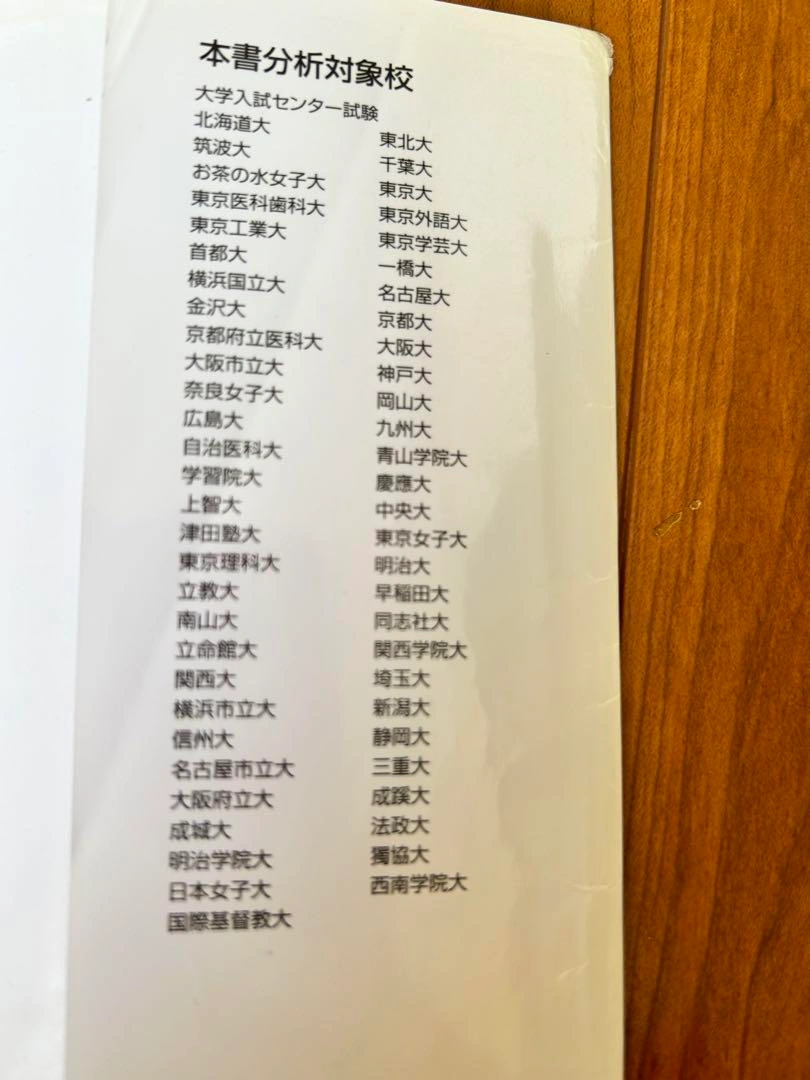 本書分析対象校
大学入試センター試験
北海道大
東北大
筑波大
千葉大
お茶の水女子大
東京大
東京医科歯科大
東京外語大
東京工業大
東京学芸大
首都大
一橋大
横浜国立大
名古屋大
金沢大
京都大
京都府立医科大
大阪大
大阪市立大
神戸大
奈良女子大
岡山大
広島大
九州大
自治医科大
青山学院大
学習院大
慶應大
上智大
中央大
津田塾大
東京女子大
東京理科大
明治大
立教大
早稲田大
南山大
同志社大
立命館大
関西学院大
関西大
埼玉大
横浜市立大
新潟大
信州大
静岡大
名古屋市立大
三重大
大阪府立大
成蹊大
成城大
法政大
明治学院大
獨協大
日本女子大
西南学院大
国際基督教大